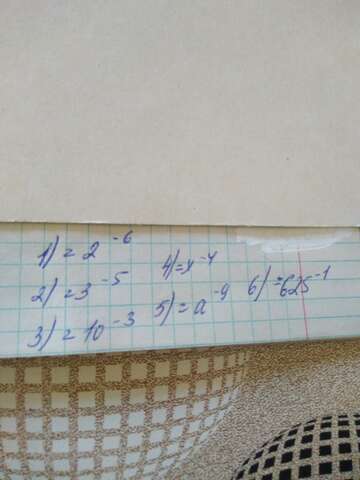 1) = 2⁻⁶
2) = 3⁻⁵
3) = 10⁻³
4) = x⁻⁴
5) = a⁻⁹
6) = 625⁻¹